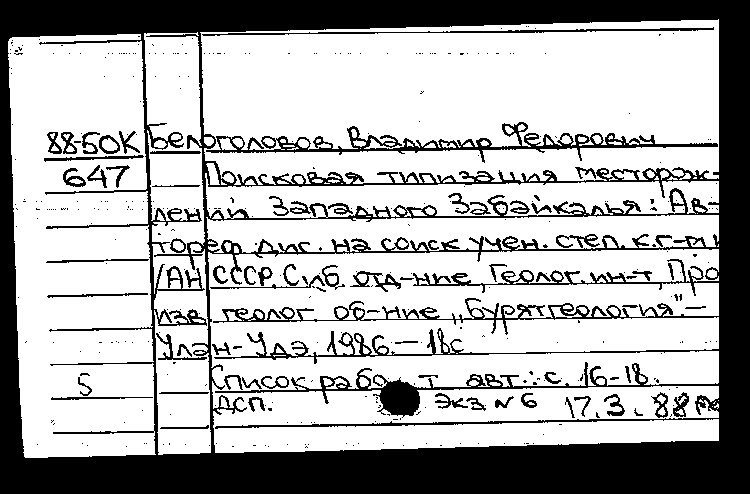 88-50К Белоголовов, Владимир Федорович
647 Поисковая типизация месторож-
дений Западного Забайкалья: Ав-
тореф. дис. на соиск. учен. степ. к.г-м.н
/АН СССР. Сиб. отд-ние, Геолог. ин-т, Про
изв. геолог. об-ние „Бурятгеология".-
Улан-Удэ, 1986.-18с.
5 Список рабо т авт.: с. 16-18.
ДСП. Экз N 6 17.3.88